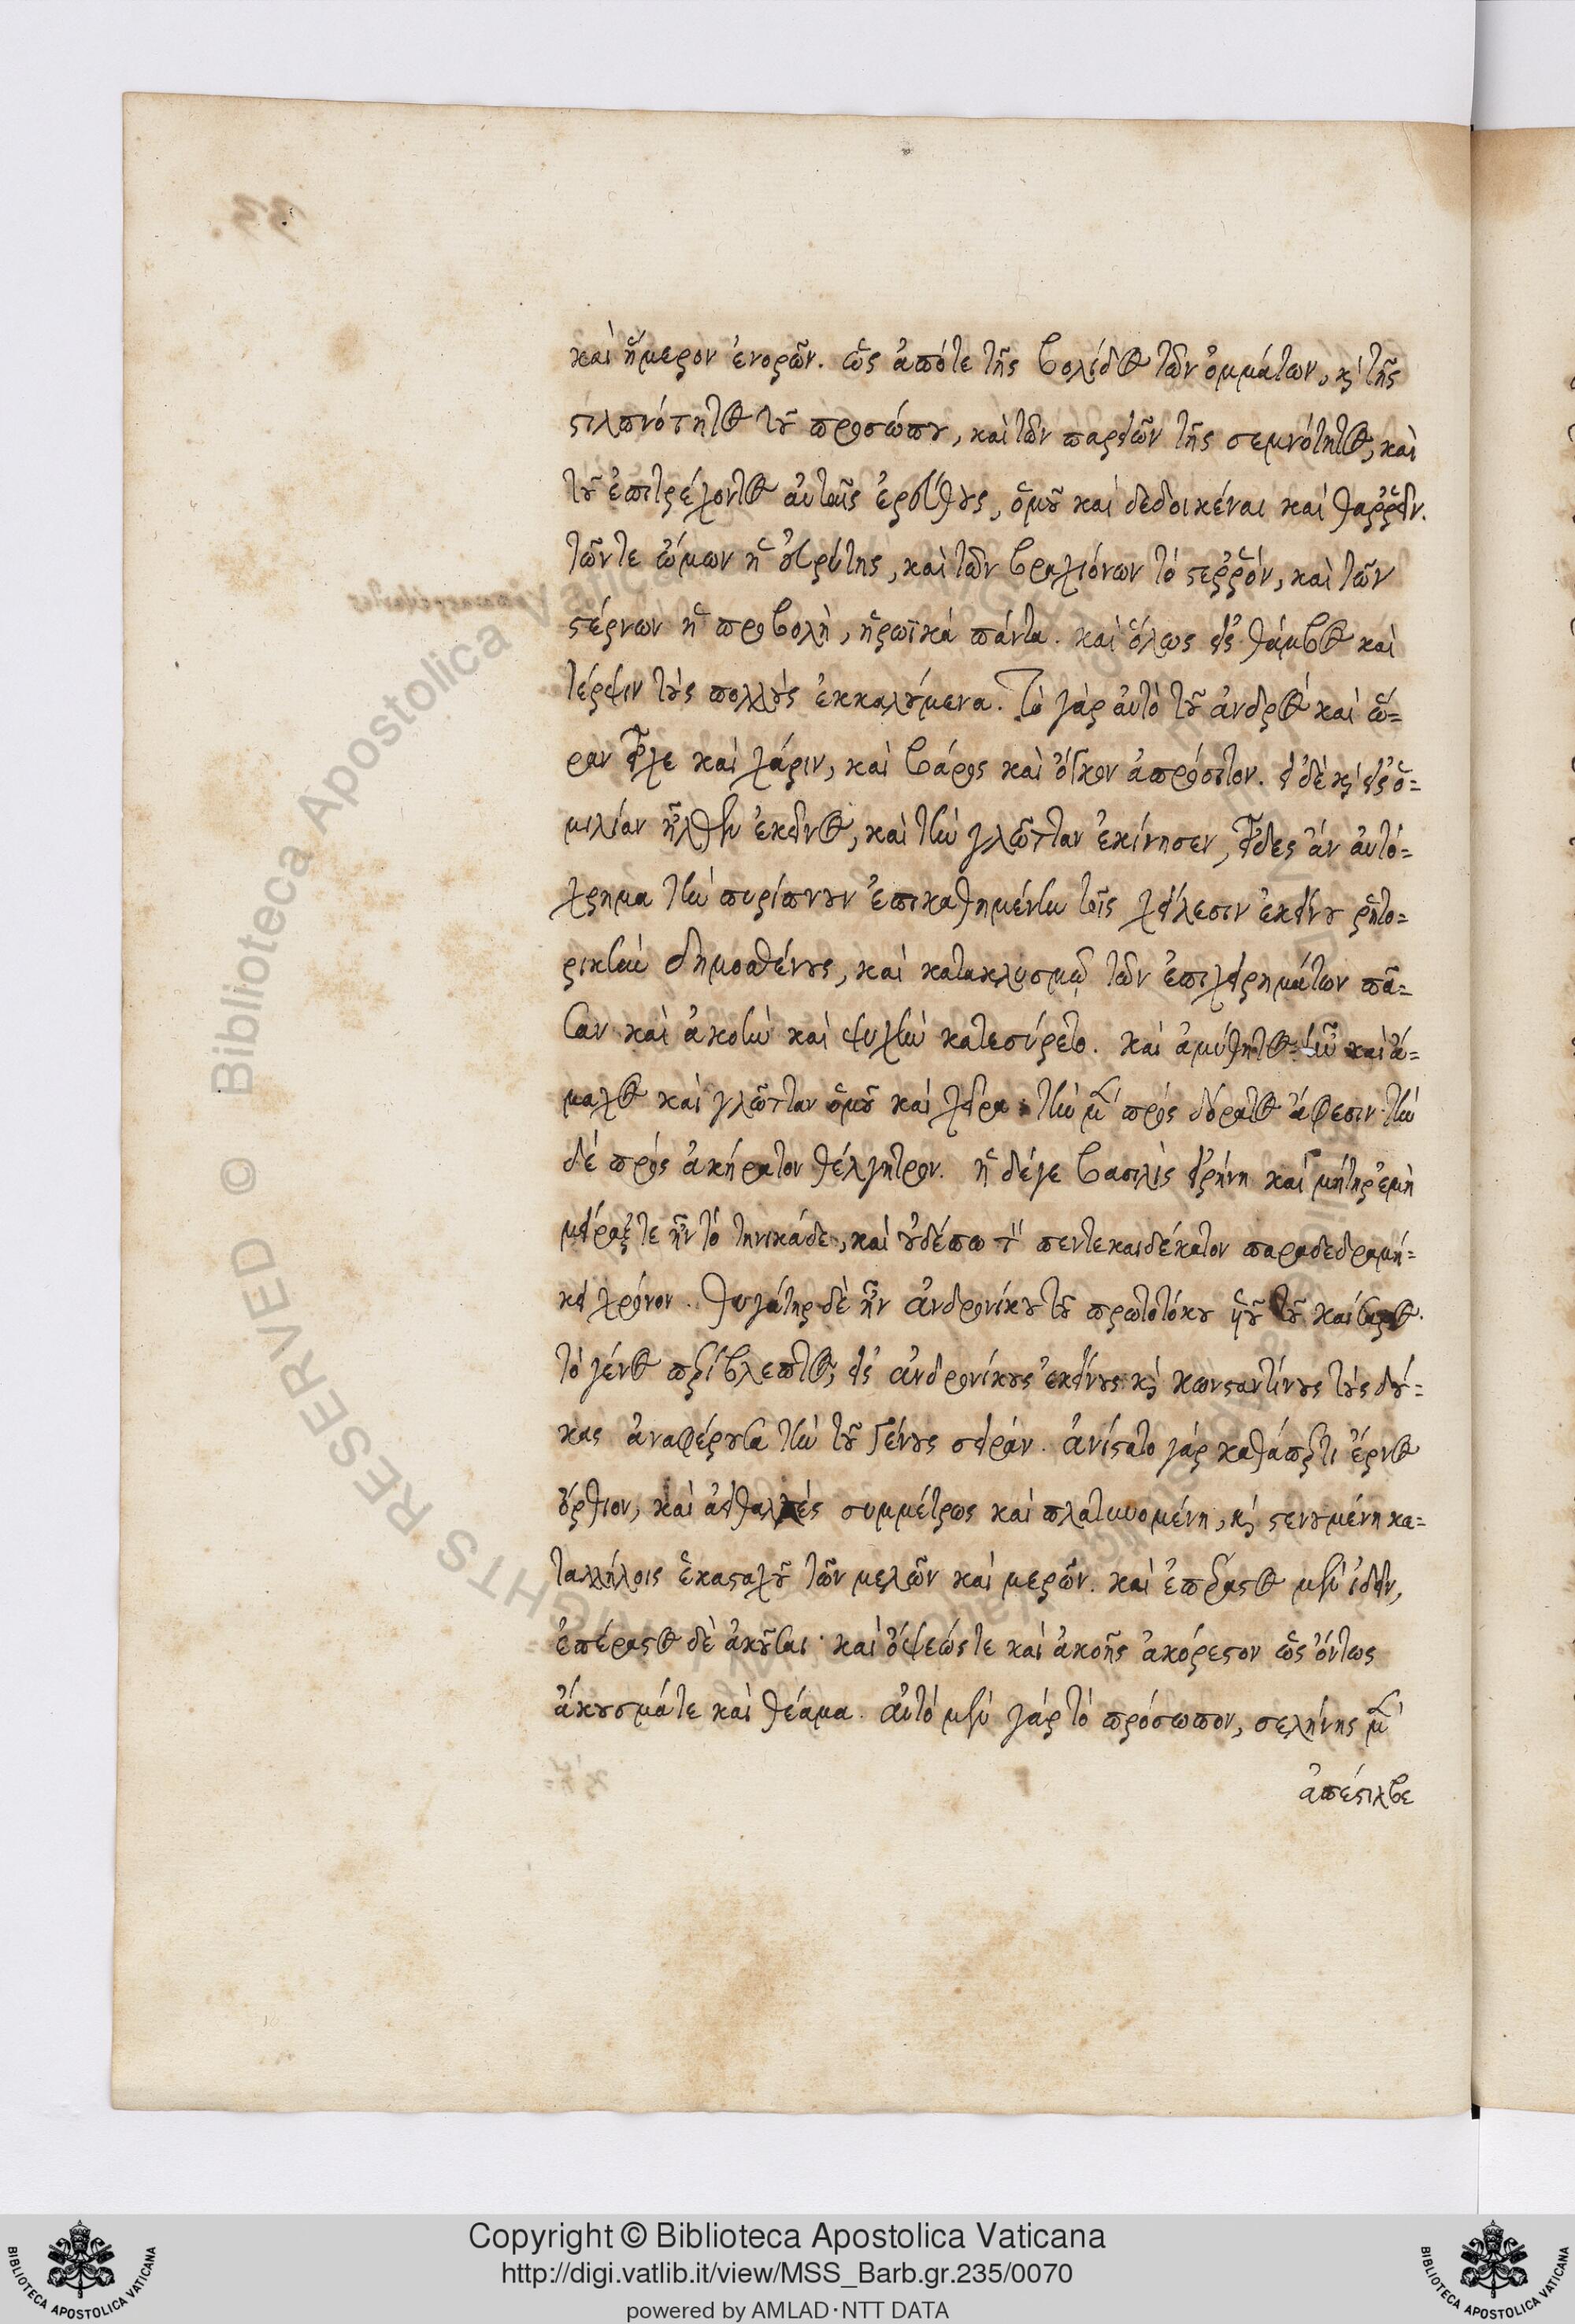 καὶ ἥμερον ἐνορῶν. ὡς ἀπότε τῆς βολίδος τῶν ὀμμάτων, κ̀ τῆς
στιλπνότητος τοῦ προσώπου, καὶ τῶν παρειῶν τῆς σεμνότητος, καὶ
τοῦ ἐπιτρέχοντος αὐταῖς ἐρεύθους, ὁμοῦ καὶ δεδοικέναι καὶ θαῤῥεῖν.
τῶντε ὤμων ἡ εὐρύτης, καὶ τῶν βραχιόνων τὸ στεῤῥόν, καὶ τῶν
στέρνων ἡ προβολὴ, ἡρωϊκὰ πάντα. καὶ ὅλως εἰς θάμβος καὶ
τέρψιν τοὺς πολλοὺς ἐκκαλούμενα. Τὸ γὰρ αὐτὸ τοῦ ἀνδρὸς καὶ ὥ=
ραν εἶχε καὶ χάριν, καὶ βάρος καὶ ὄγκον ἀπρόσιτον. εἰ δὲ κ̀ εἰς ὁ=
μιλίαν ἦλθεν ἐκεῖνος, καὶ τὴν γλῶτταν ἐκίνησεν, εἶδες ἂν αὐτό=
χρημα τὴν πυρίπνουν ἐπικαθημένην τοῖς χείλεσιν ἐκείνου ῥητο=
ρικὴν δημοσθένους, καὶ κατακλυσμῷ τῶν ἐπιχειρημάτων πᾶ=
σαν καὶ ἀκοὴν καὶ ψυχὴν κατεσύρετο. καὶ ἀμύθητος ἦν καὶ ἄ=
μαχος καὶ γλῶτταν ὁμοῦ καὶ χεῖρα· τὴν μὲν πρὸς δόρατος ἄφεσιν· τὴν
δὲ πρὸς ἀκήρατον θέλγητρον. ἡ δέγε βασιλὶς εἰρήνη καὶ μήτηρ ἐμὴ
μεῖραξτε ἦν τὸ τηνικάδε, καὶ οὐδέπω τὸν πεντεκαιδέκατον παραδεδραμή=
κει χρόνον. θυγάτηρ δὲ ἦν ἀνδρονίκου τοῦ πρωτοτόκου υἱοῦ τοῦ καίσαρος.
τὸ γένος περίβλεπτος, εἰς ἀνδρονίκους ἐκείνους κ̀ κωνσταντίνους τοὺς δού=
κας ἀναφέρουσα τὴν τοῦ Γένους σειράν. ἀνίστατο γὰρ καθάπερ τι ἔρνος
ὄρθιον, καὶ ἀειθαλὲς συμμέτρως καὶ πλατυνομένη, κ̀ στενουμένη κα=
ταλλήλοις ἑκασταχοῦ τῶν μελῶν καὶ μερῶν. καὶ ἐπέραστος μὲν ἰδεῖν,
ἐπέραστος δὲ ἀκοῦσαι· καὶ ὄψεώςτε καὶ ἀκοῆς ἀκόρεστον ὡς ὄντως
ἄκουσμάτε καὶ θέαμα. αὐτὸ μὲν γὰρ τὸ πρόσωπον, σελήνης μὲν
ἀπέστιλβε
Biblioteca Apostolica Vaticana ©
Copyright © Biblioteca Apostolica Vaticana
http://digi.vatlib.it/view/MSS_Barb.gr.235/0070
powered by AMLAD·NTT DATA
BIBLIOTECA APOSTOLICA VATICANA
BIBLIOTECA APOSTOLICA VATICANA